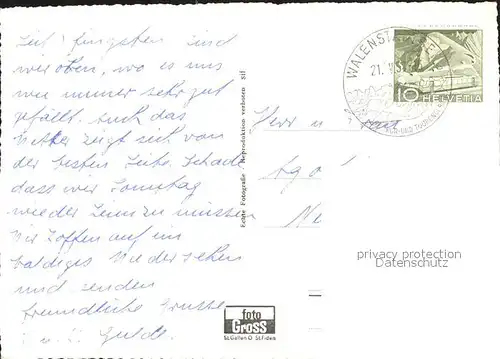 Seit Pfingsten sind
wir oben, wo es uns
wie immer sehr gut
gefällt. Auch das
Wetter zeigt sich von
der besten Seite. Schade
dass wir Sonntag
wieder heim müssen
Wir hoffen auf ein
baldiges Wiedersehen
und senden
freundliche Grüsse
Echte Fotografie Reproduktion verboten
WALENST
21.
10
HELVETIA
Herr u
privacy protection
Datenschutz
foto
GROSS
St.Gallen O St.Fiden